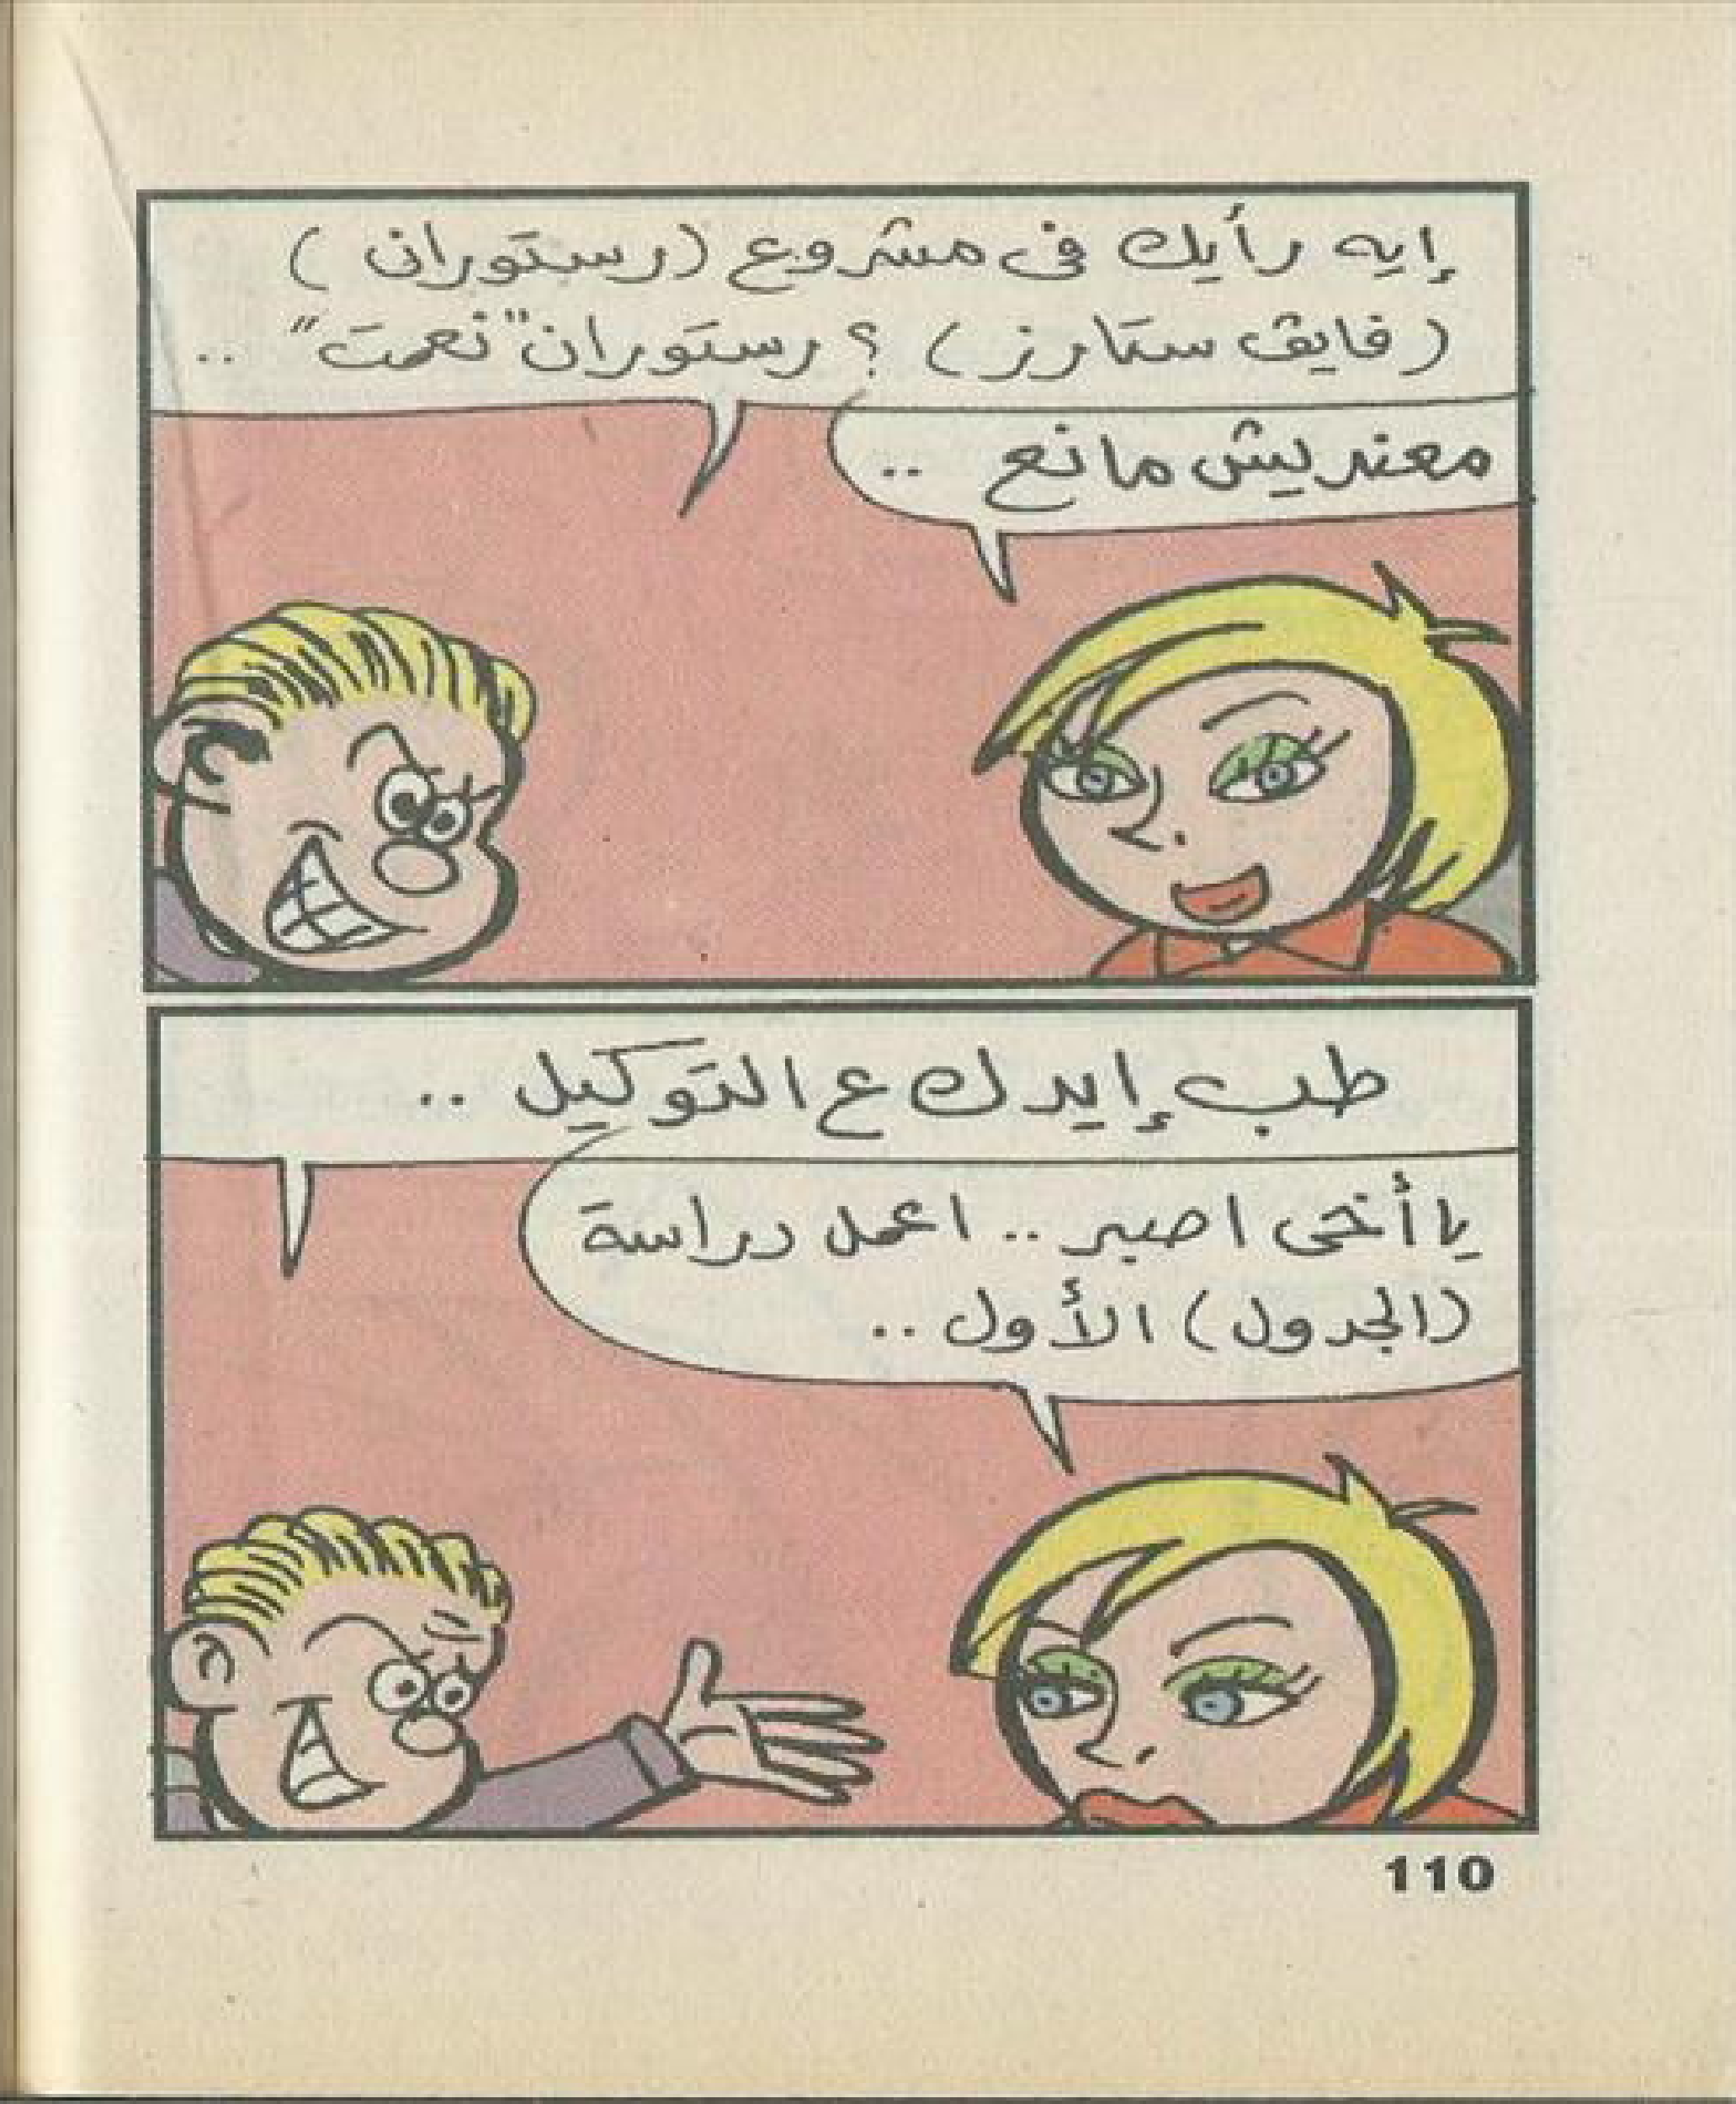 إيه رأيك فى مشروع (رستوران)
(فايف ستارز) ؟ رستوران "نعمت" ..
معنديش مانع ..
طب إيدك ع التوكيل ..
يا أخى اصبر .. اعمل دراسة
(الجدول) الأول ..
110